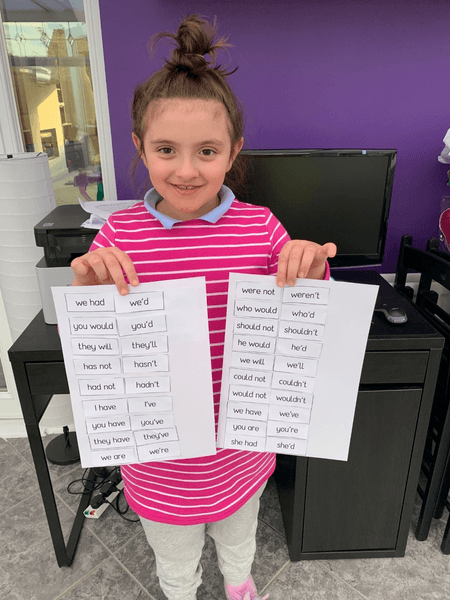 we had we'd
you would you'd
they will they'll
has not hasn't
had not hadn't
I have I've
you have you've
they have they've
we are we're
were not weren't
who would who'd
should not shouldn't
he would he'd
we will we'll
could not couldn't
would not wouldn't
we have we've
you are you're
she had she'd